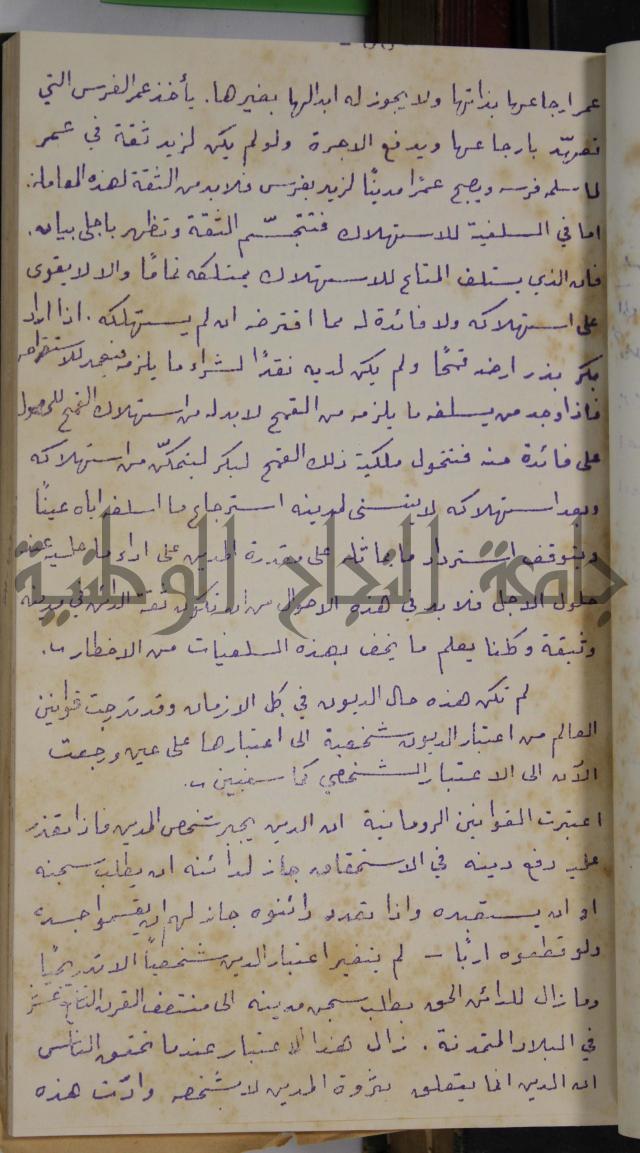 عمر ارجاعها بذاتها ولا يجوز له ابدالها بغيرها. يأخذ عمر الفرس التي
تعهّد بارجاعها ويدفع الاجرة ولو لم يكن لزيد ثقة في عمر
لما سلمه فرسه ويصبح عمرًا مدينًا لزيد بفرس فلا بد من الثقة لهذه المعاملة.
اما في السلفية للاستهلاك فتتجسّم الثقة وتظهر باجلى بيان.
فان الذي يستلف المتاع للاستهلاك يمتلكه تمامًا والا لا يقوى
على استهلاكه ولا فائدة له مما اقترضه ان لم يستهلكه. اذا اراد
بكر بذر ارضه قمحًا ولم يكن لديه نقدًا لشراء ما يلزمه فيعمد للاستقراض
فاذا وجد من يسلفه ما يلزمه من القمح لا بد له من استهلاك القمح للحصول
على فائدة منه فتتحول ملكية ذلك القمح لبكر ليتمكّن من استهلاكه
وبعد استهلاكه لا يتسنى لمدينه استرجاع ما اسلفه اياه عينًا
ويتوقف استرداد ما يماثله على مقدرة المدين على اداء ما عليه عند
حلول الاجل فلا بد في هذه الاحوال من ان تكون ثقة الدائن في مدينه
وثيقة وكلنا يعلم ما يحف بهذه السلفيات من الاخطار.
لم تكن هذه حال الديون في كل الازمان وقد تدرجت قوانين
العالم من اعتبار الديون شخصية الى اعتبارها على عين ورجعت
الآن الى الاعتبار الشخصي كما سنبين.
اعتبرت القوانين الرومانية ان الدين يجبر شخص المدين فاذا تعذر
عليه دفع دينه في الاستحقاق جاز لدائنه ان يطلب سجنه
او ان يستعبده واذا تعدد دائنوه جاز لهم ان يقسموا جسده
ولو قطعوه اربًا - لم يتغير اعتبار الدين شخصيًا الا تدريجيًا
وما زال للدائن الحق بطلب سجن مدينه الى منتصف القرن التاسع عشر
في البلاد المتمدنة. زال هذا الاعتبار عندما تحقق الناس
ان الدين انما يتعلق بثروة المدين لا بشخصه وادّت هذه
جامعة النجاح الوطنية